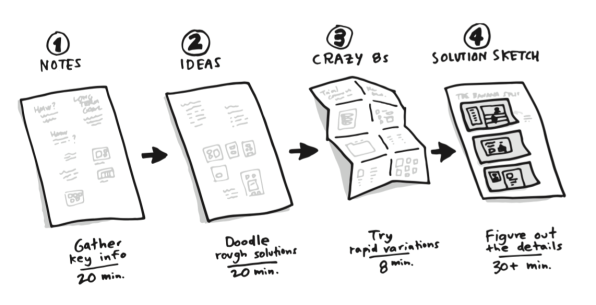 1
NOTES
Gather
key info
20 min.
2
IDEAS
Doodle
rough solutions
20 min.
3
CRAZY 8s
Try
rapid variations
8 min.
4
SOLUTION SKETCH
Figure out
the details
30+ min.